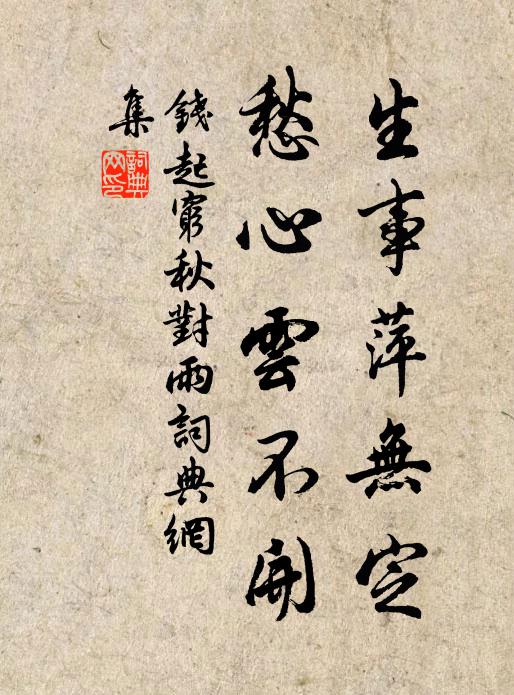 生事萍無定
愁心雲不開
錢起窮秋對雨詞典網
集
詞典
网印